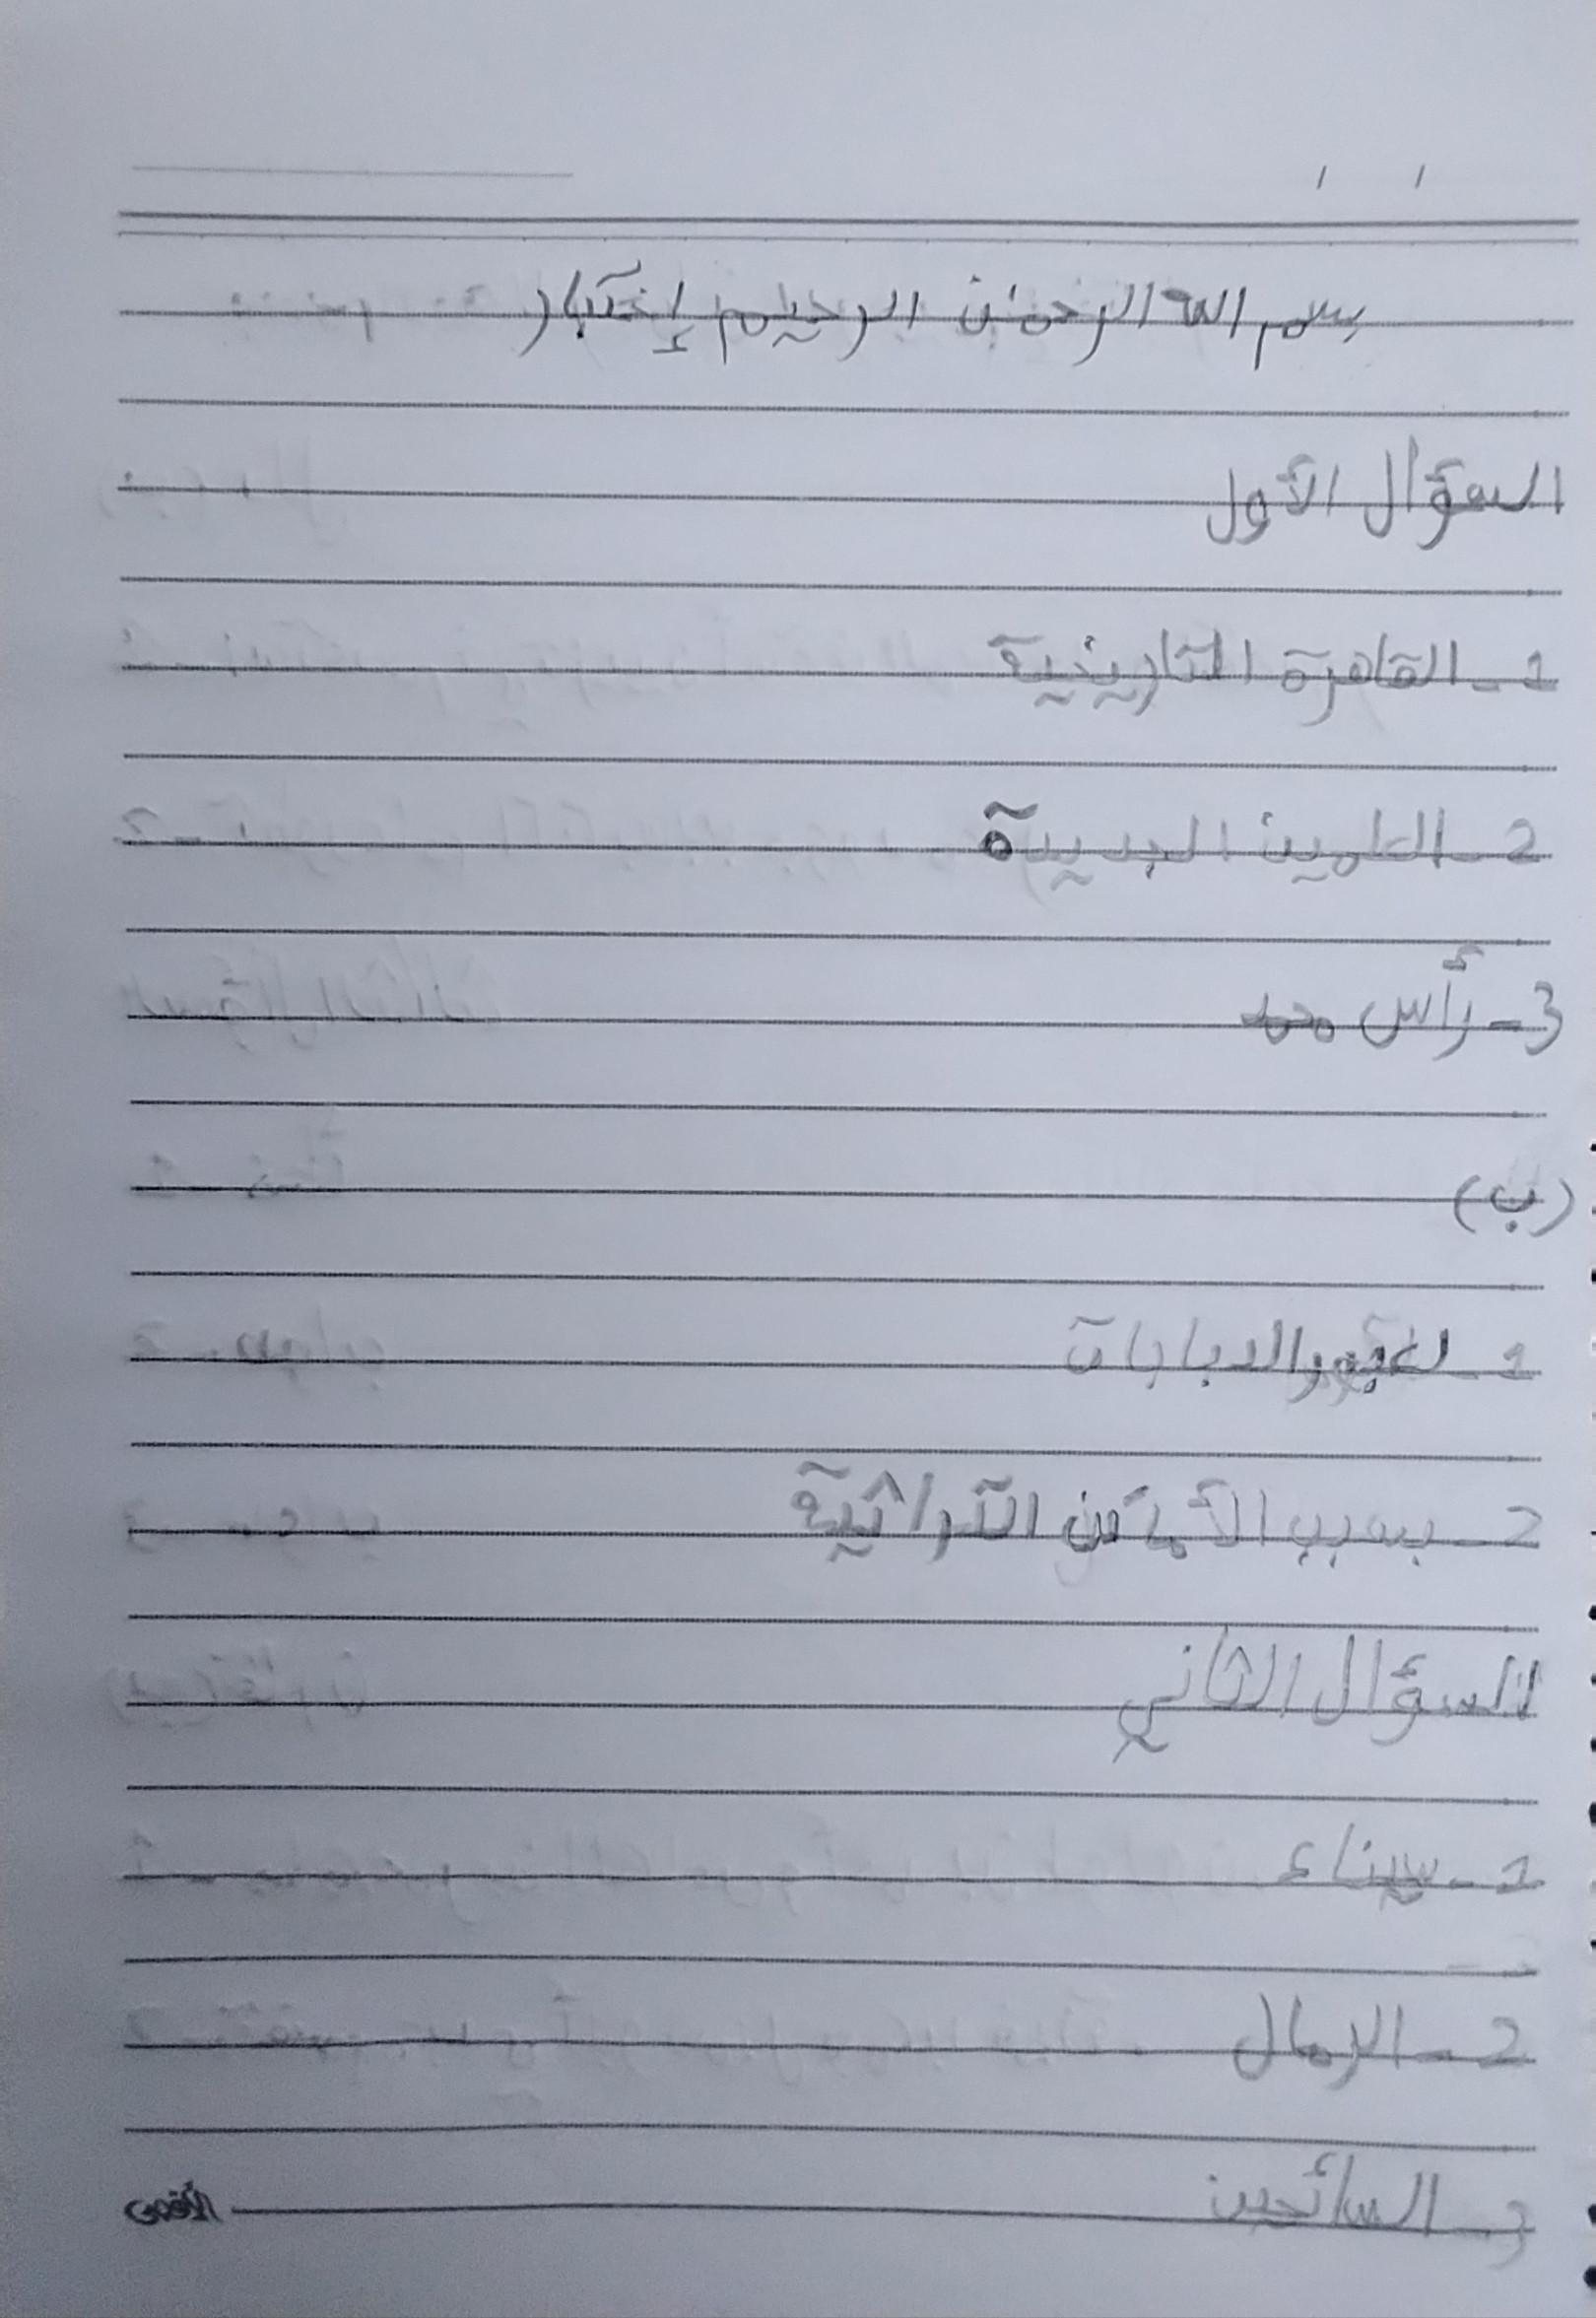 بسم الله الرحمٰن الرحيم إختبار
السؤال الأول
1- القاهرة التاريخية
2- العلمين الجديدة
3- رأس محمد
(ب)
1- لعبور الدبابات
2- بسبب الأماكن التراثية
السؤال الثاني
1- سيناء
2- الرمال
3- السائحين